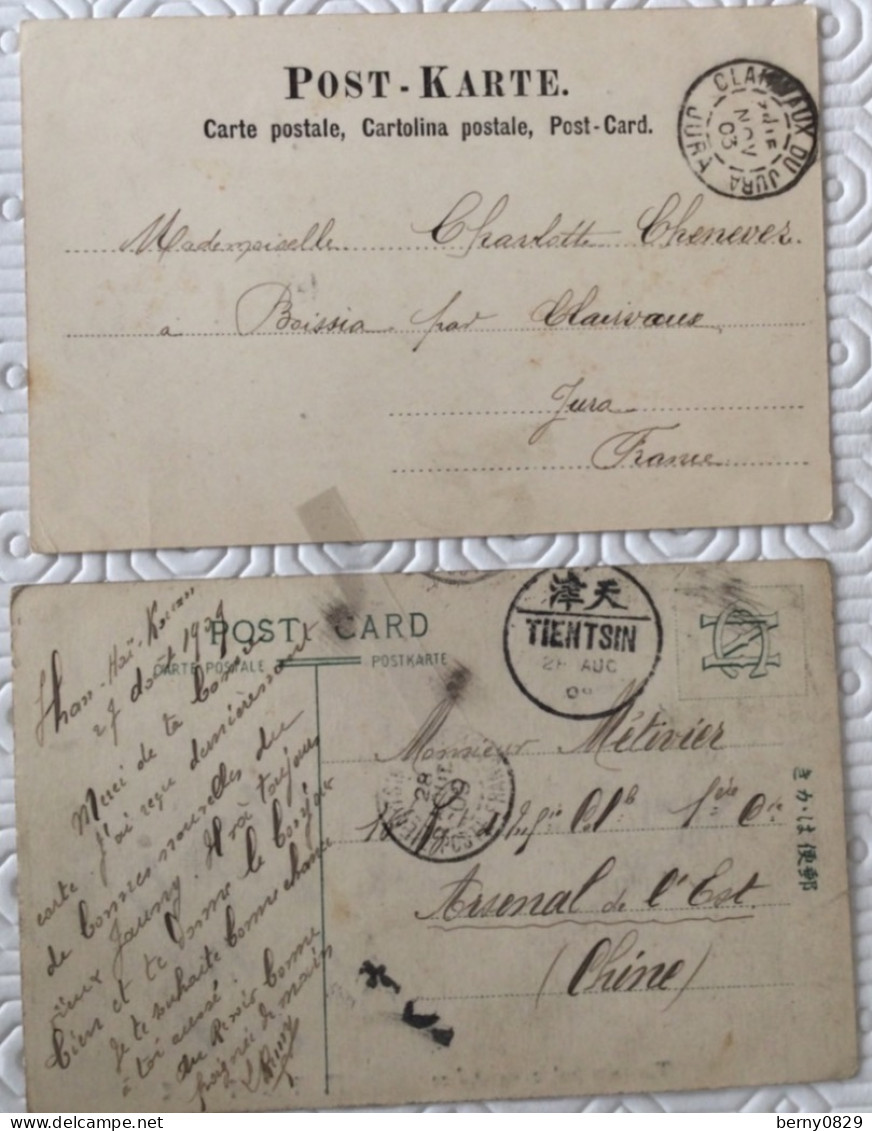 POST-KARTE.
Carte postale, Cartolina postale, Post-Card.
CLAIRVAUX DU JURA
JURA
NOV
03
Mademoiselle Charlotte Chenevez
à Boissia par Clairvaux
Jura
France
POST CARD
CARTE POSTALE POSTKARTE
津天
TIENTSIN
28 AUG
09
28
09
きかは便郵
Shan-Haï-Kouan
27 août 1909
Merci de ta bonne
carte j'ai reçu dernièrement
de bonnes nouvelles du
vieux Jauny. Il va toujours
bien et te donne le bonjour
Je te souhaite bonne chance
à toi aussi.
au revoir bonne
poignée de main
Monsieur Métivier
Col 1ère Cie
Arsenal de l'Est
(Chine)
delcampe.net
berny0829